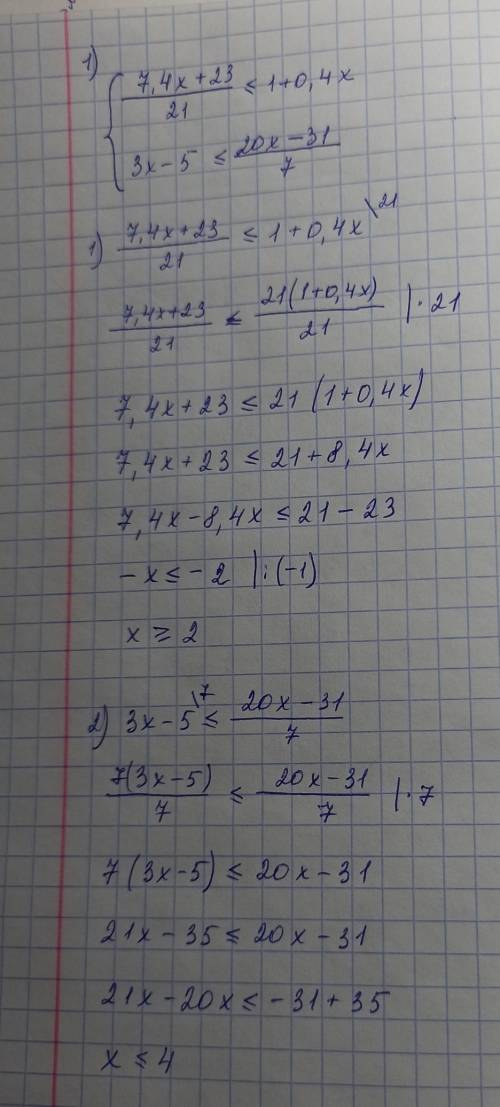 1)
{ (7,4x+23)/21 ≤ 1+0,4x
3x-5 ≤ (20x-31)/7
1) (7,4x+23)/21 ≤ 1+0,4x \21
(7,4x+23)/21 ≤ 21(1+0,4x)/21 |·21
7,4x+23 ≤ 21(1+0,4x)
7,4x+23 ≤ 21+8,4x
7,4x-8,4x ≤ 21-23
-x ≤ -2 |:(-1)
x ≥ 2
2) 3x-5 \7 ≤ (20x-31)/7
7(3x-5)/7 ≤ (20x-31)/7 |·7
7(3x-5) ≤ 20x-31
21x-35 ≤ 20x-31
21x-20x ≤ -31+35
x ≤ 4